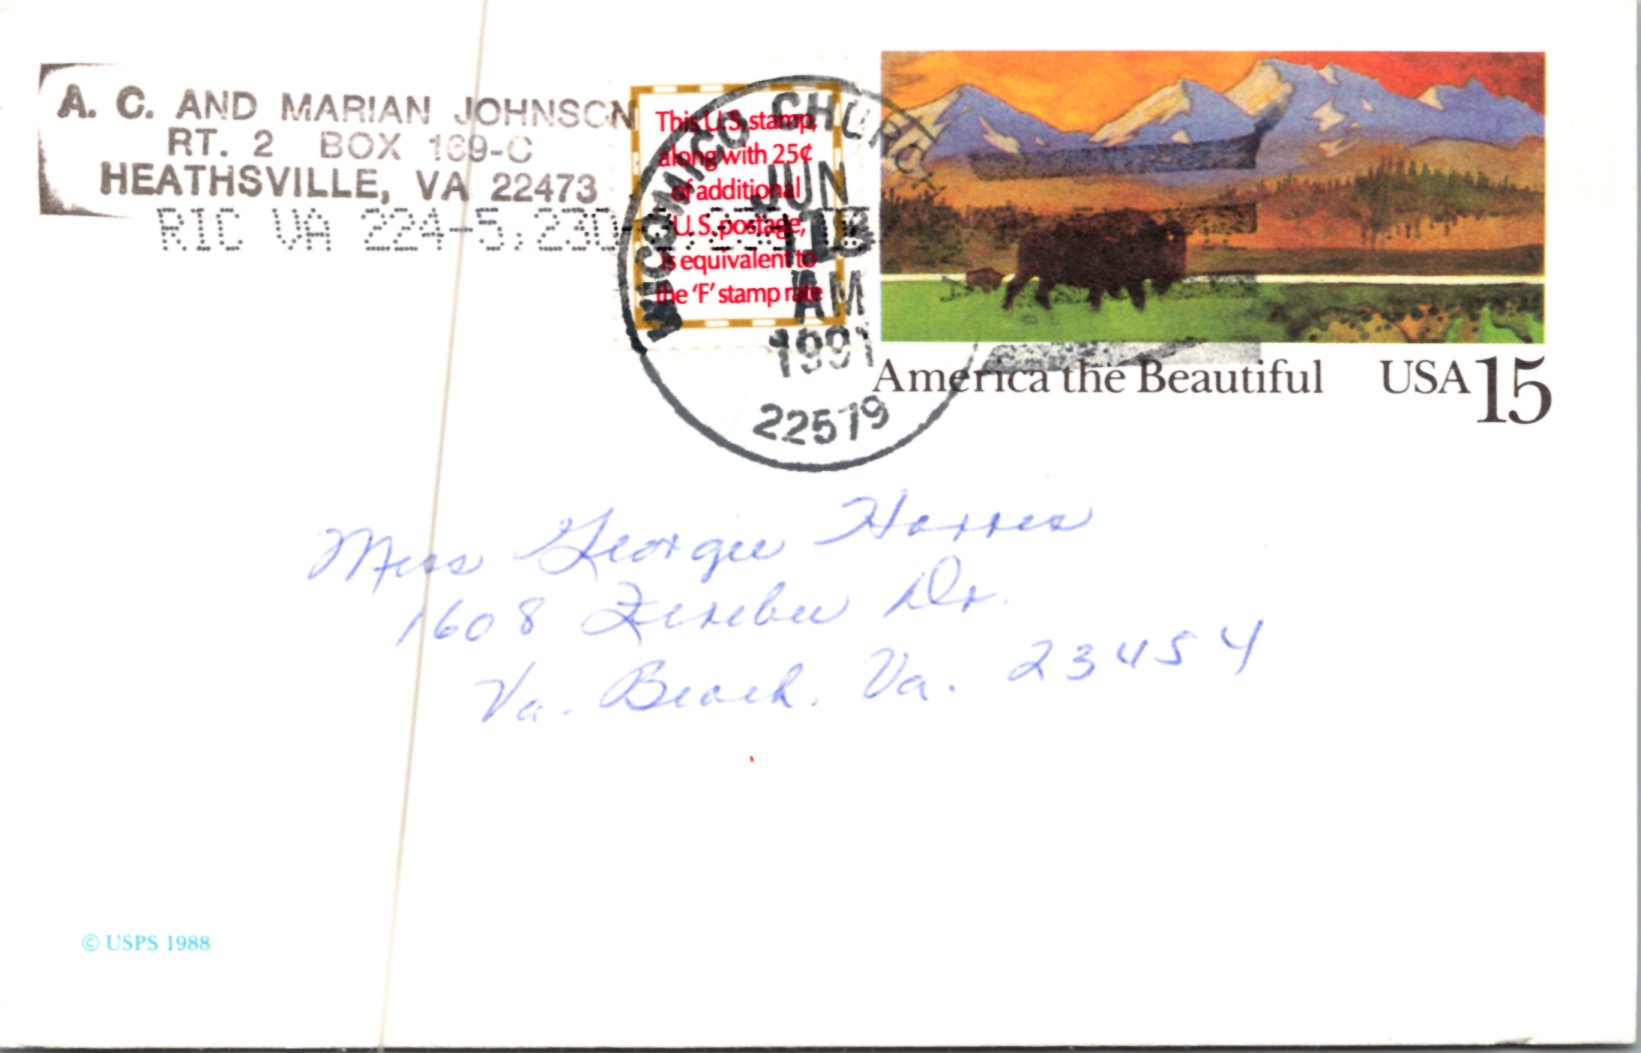 A. C. AND MARIAN JOHNSON
RT. 2 BOX 169-C
HEATHSVILLE, VA 22473
RIC VA 224-5,230
This U.S. stamp,
along with 25¢
of additional
U.S. postage,
is equivalent to
the 'F' stamp rate
WICOMICO CHURCH
JUN
AM
1991
22579
America the Beautiful USA 15
Miss Georgie Harris
1608 Dr.
Va. Beach, Va. 23454
© USPS 1988